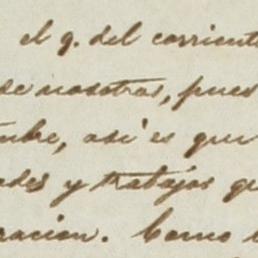 el 9. del corriente
de nosotros, pues
mbre, asi es que
ades y trabajos qu
racion. Como